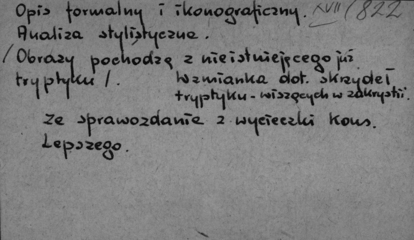 Opis formalny i ikonograficzny. XVII/822
Analiza stylistyczna.
/Obrazy pochodzą z nieistniejącego już
tryptyku/. Wzmianka dot. skrzydeł
tryptyku - wiszących w zakrystii.
Ze sprawozdanie z wycieczki kons.
Lepszego.